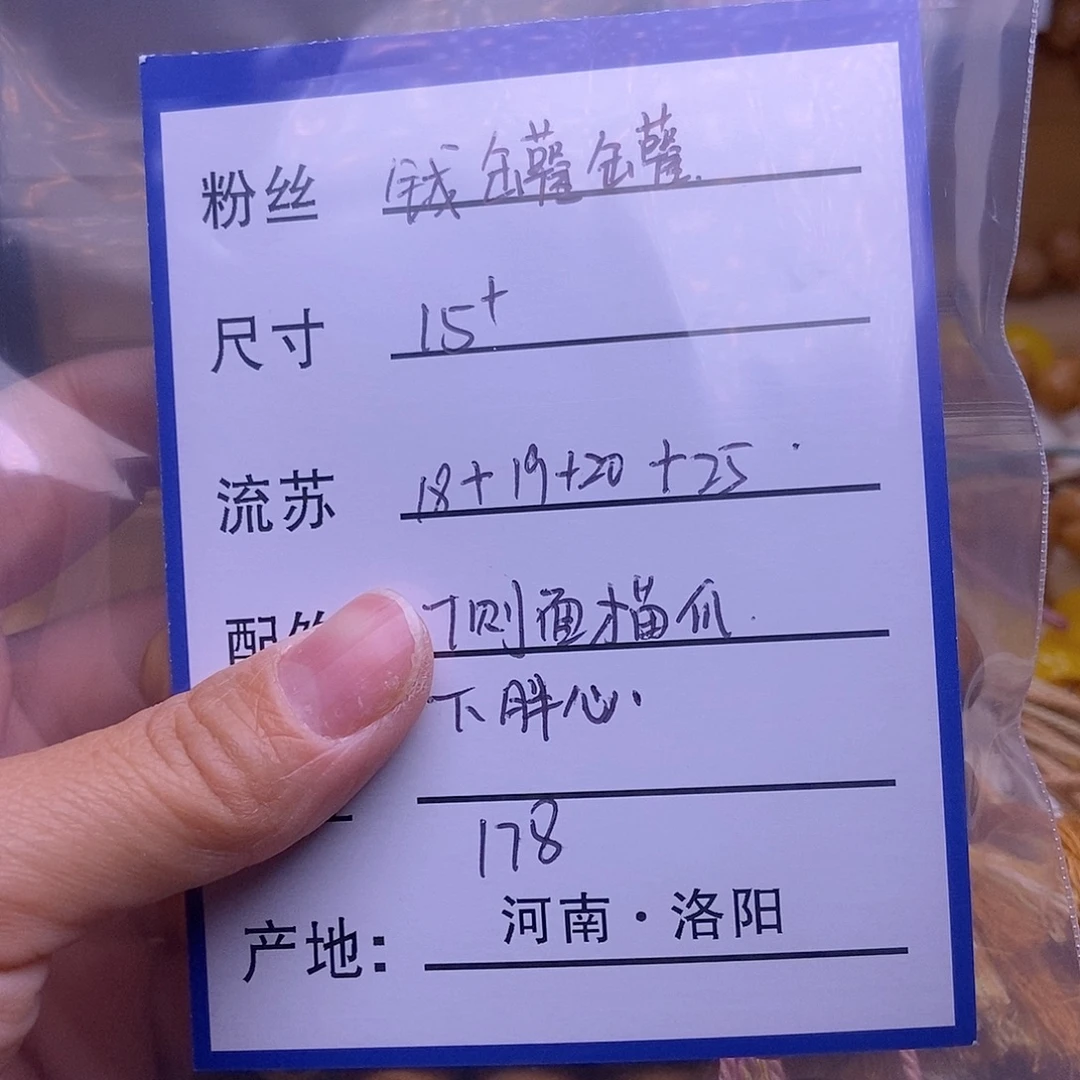 粉丝 钱罐罐
尺寸 15+
流苏 18+19+20+25
配 侧面猫爪
下胖心
178
产地: 河南·洛阳